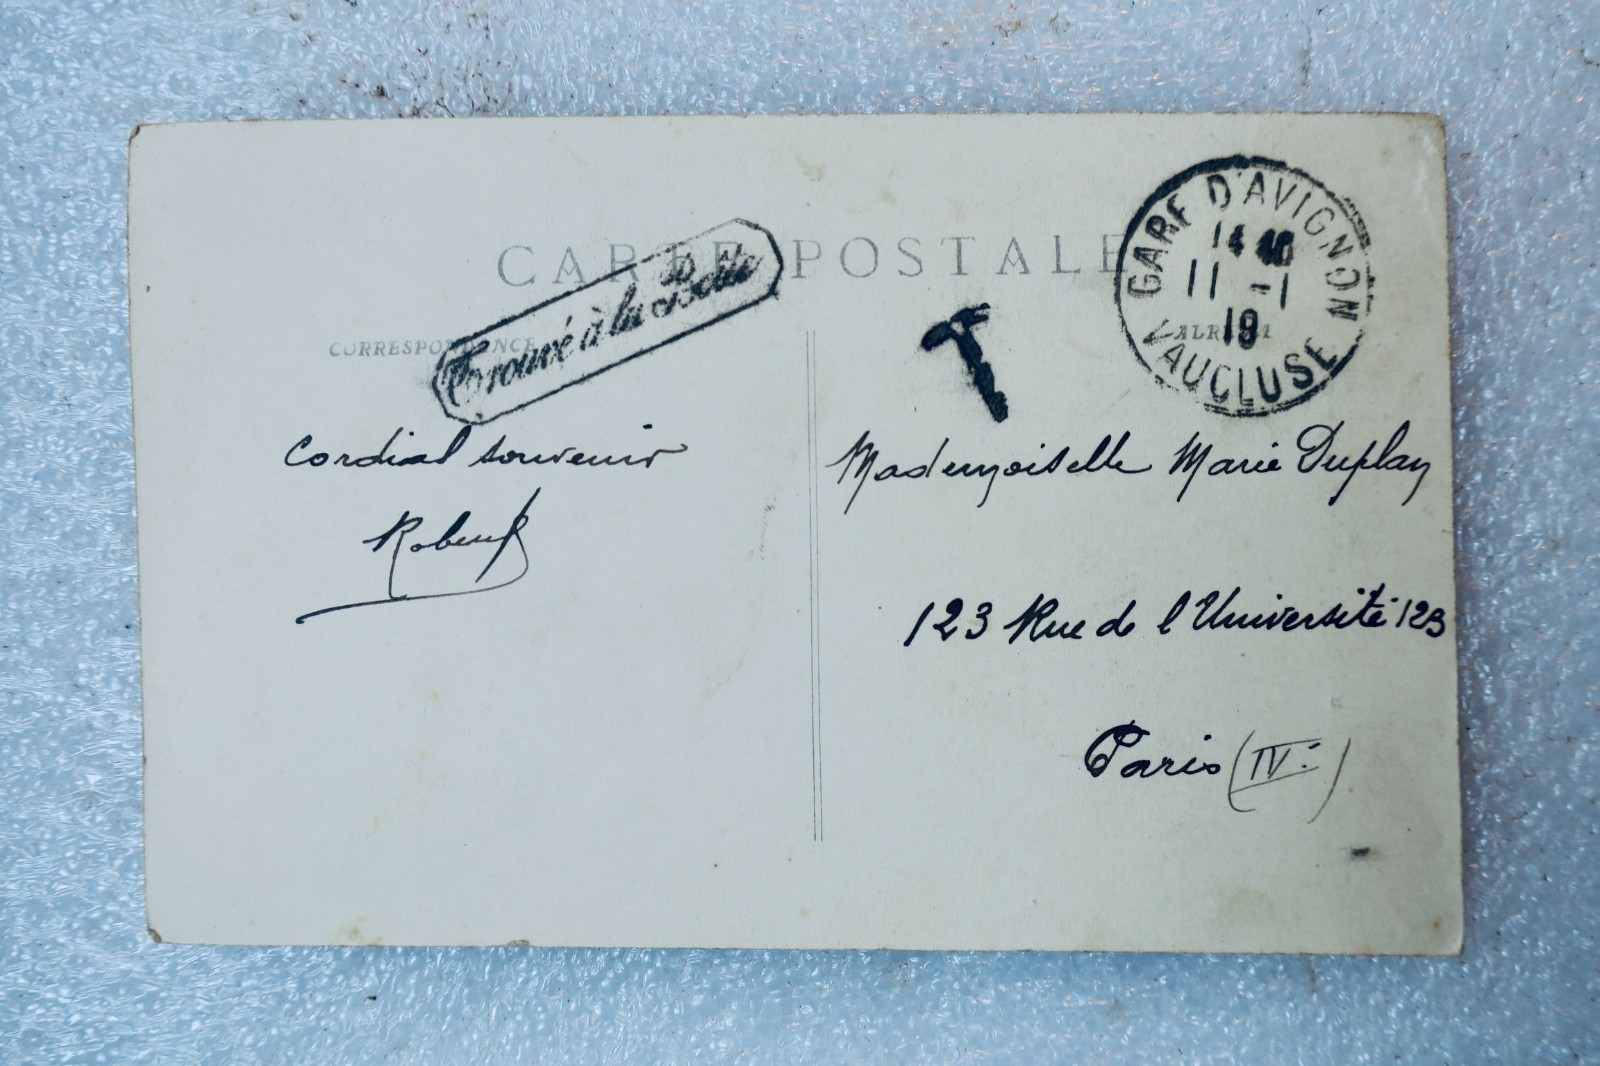 CARTE POSTALE
Trouvé à la Boîte
CORRESPONDANCE
GARE D'AVIGNON
14 40
11 -1
19
VAUCLUSE
T
Cordial souvenir
Mademoiselle Marie Duplay
123 Rue de l'Université 123
Paris (IV.)